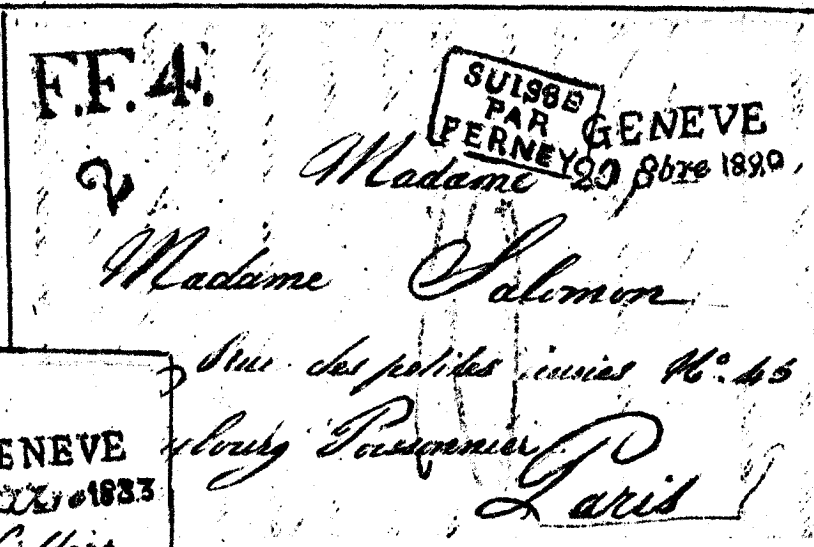 F.F.4.
SUISSE
PAR
FERNEY
GENEVE
20 8bre 1820
2
Madame
Madame Salomon
Rue des petites écuries N.º 45
bourg Poissonnier
Paris
ENEVE
1833